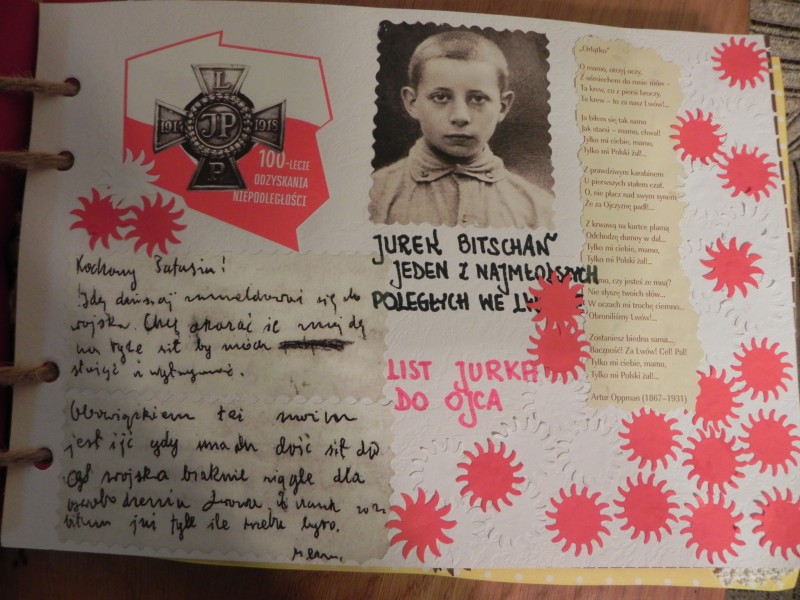 L
1914 JP 1918
P
100-LECIE
ODZYSKANIA
NIEPODLEGŁOŚCI
JUREK BITSCHAN
JEDEN Z NAJMŁODSZYCH
POLEGŁYCH WE
Kochany Tatusiu!
Idę dzisiaj zameldować się do
wojska. Chcę okazać że znajdę
na tyle sił by móc
służyć i wytrzymać.
Obowiązkiem też moim
jest iść gdy mam dość sił
wojska braknie ciągle dla
oswobodzenia Lwowa. Z nauk
już tyle ile trzeba było.
LIST JURKA
DO OJCA
„Orlątko"
O mamo, otrzyj oczy,
Z uśmiechem do mnie mów –
Ta krew, co z piersi broczy,
Ta krew – to za nasz Lwów!...
Ja biłem się tak samo
Jak starsi – mamo, chwal!
Tylko mi ciebie, mamo,
Tylko mi Polski żal!...
Z prawdziwym karabinem
U pierwszych stałem czat.
O, nie płacz nad swym synem
Że za Ojczyznę padł!...
Z krwawą na kurtce plamą
Odchodzę dumny w dal...
Tylko mi ciebie, mamo,
Tylko mi Polski żal!...
czy jesteś ze mną?
Nie słyszę twoich słów...
W oczach mi trochę ciemno...
Obroniliśmy Lwów!...
Zostaniesz biedna sama...
Baczność! Za Lwów! Cel! Pal!
Tylko mi ciebie, mamo,
Tylko mi Polski żal!...
Artur Oppman (1867–1931)